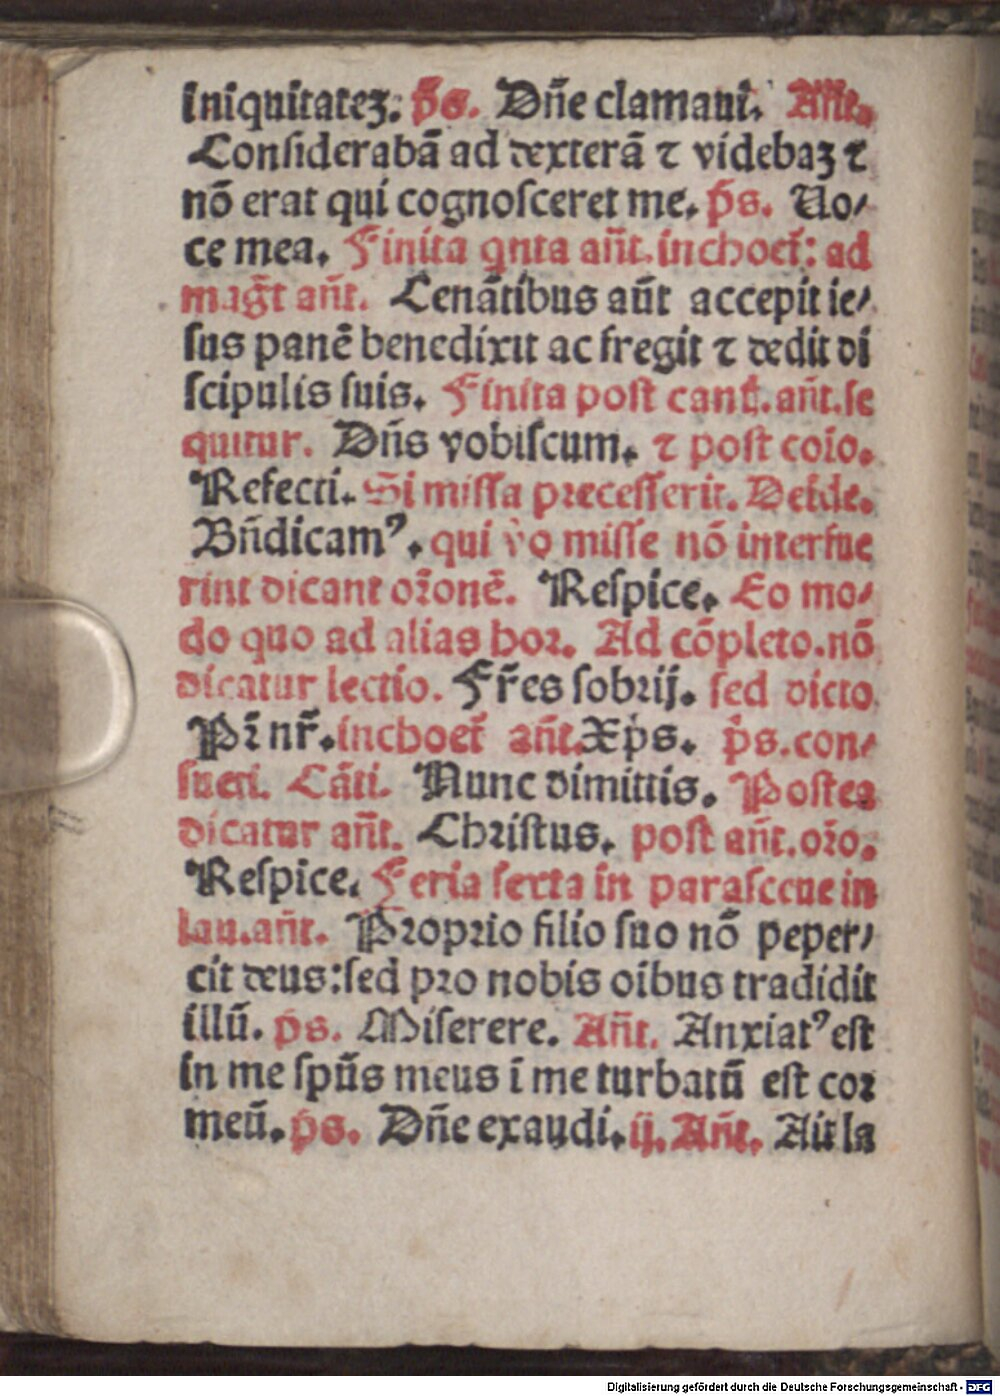 iniquitateꝫ: p̄s. Dn̄e clamaui. Ān̄t.
Conſiderabā ad dexterā ⁊ videbaꝫ ⁊
nō erat qui cognoſceret me. p̄s. Uo⸗
ce mea. Finita qnta an̄t. inchoet᷑: ad
mag̅t an̄t. Cenātibus aūt accepit ie⸗
ſus panē benedixit ac fregit ⁊ dedit di
ſcipulis ſuis. Finita poſt cant᷑. an̄t. ſe
quitur. Dn̄s vobiſcum. ⁊ poſt coīo.
Refecti. Si miſſa preceſſerit. Deīde.
Bn̄dicamꝰ. qui v̊o miſſe nō interfue
rint dicant oꝛ̄onē. Reſpice. Eo mo⸗
do quo ad alias hoꝛ. Ad cōpleto. nō
dicatur lectio. Fr̄es ſobꝛij. ſed dicto
Pꝛ̄ nr̄. inchoet᷑ an̄t. Xp̄s. p̄s. con⸗
ſueti. Cāti. Nunc dimittis. Poſtea
dicatur an̄t. Chꝛiſtus. poſt an̄t. oꝛ̄o.
Reſpice. Feria ſexta in paraſceue in
lau. an̄t. Pꝛopꝛio filio ſuo nō peper⸗
cit deus: ſed pꝛo nobis oībus tradidit
illū. p̄s. Miſerere. An̄t. Anxiatꝰ eſt
in me ſpūs meus ī me turbatū eſt coꝛ
meū. p̄s. Dn̄e exaudi. ij. An̄t. Ait la
Digitalisierung gefördert durch die Deutsche Forschungsgemeinschaft - DFG